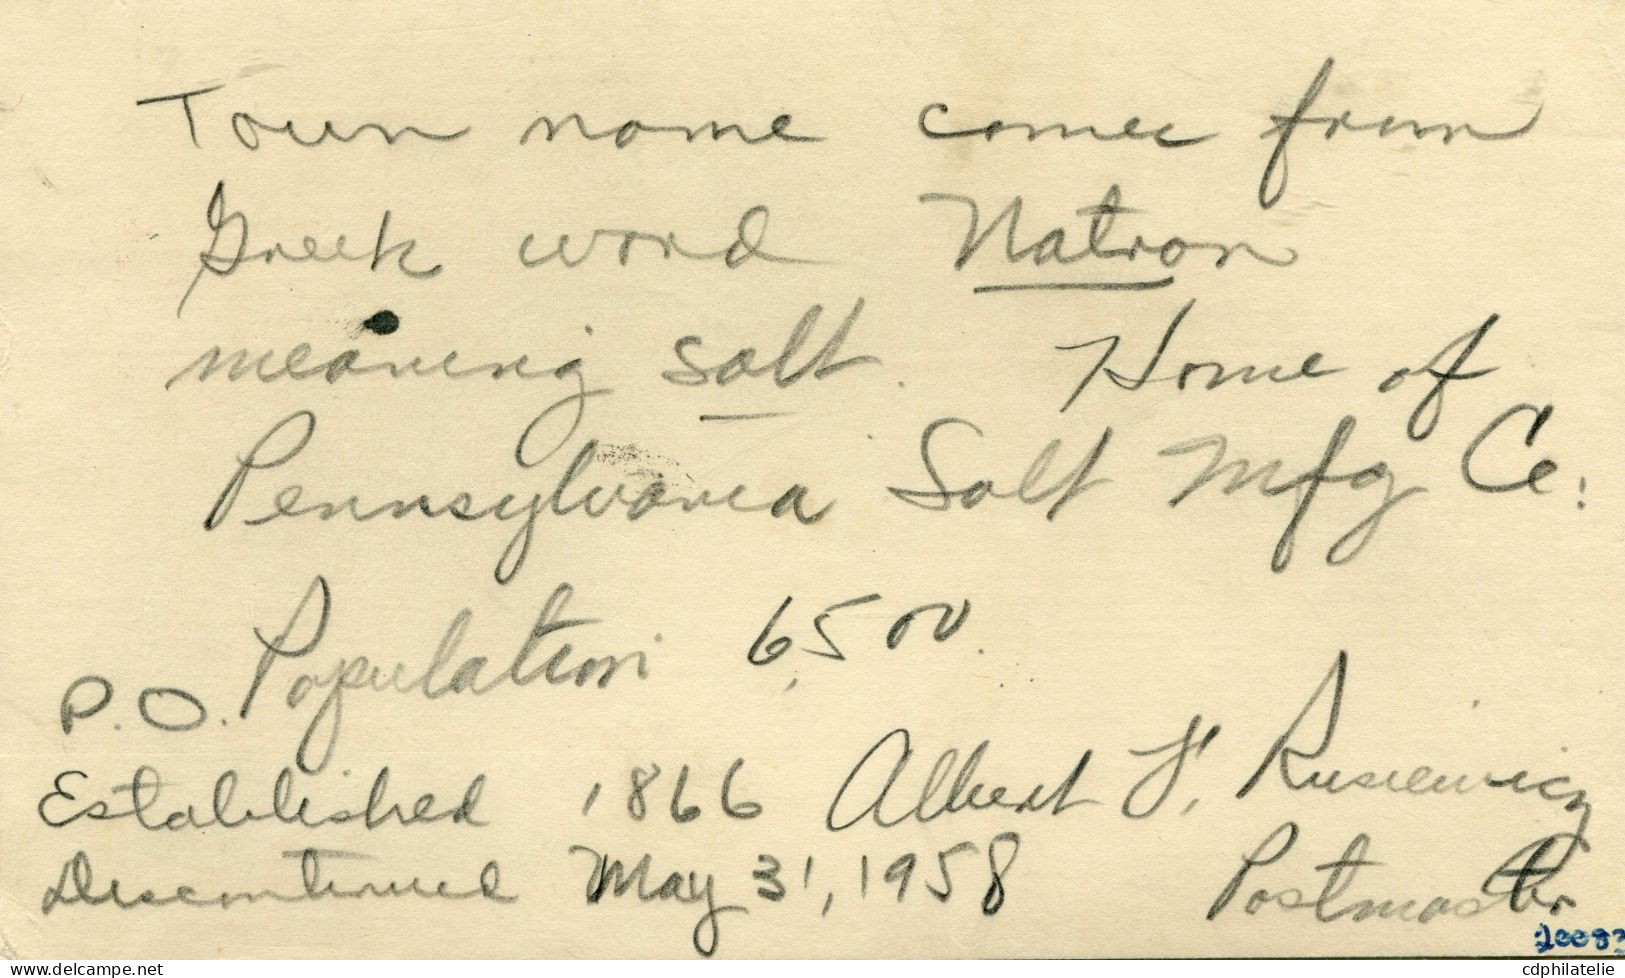 Town name comes from
Greek word Natron
meaning salt. Home of
Pennsylvania Salt Mfg Co.
Population 6,500.
P.O.
Established 1866 Albert F. Rusiewicz
Discontinued May 31, 1958 Postmaster
cdphilatelie